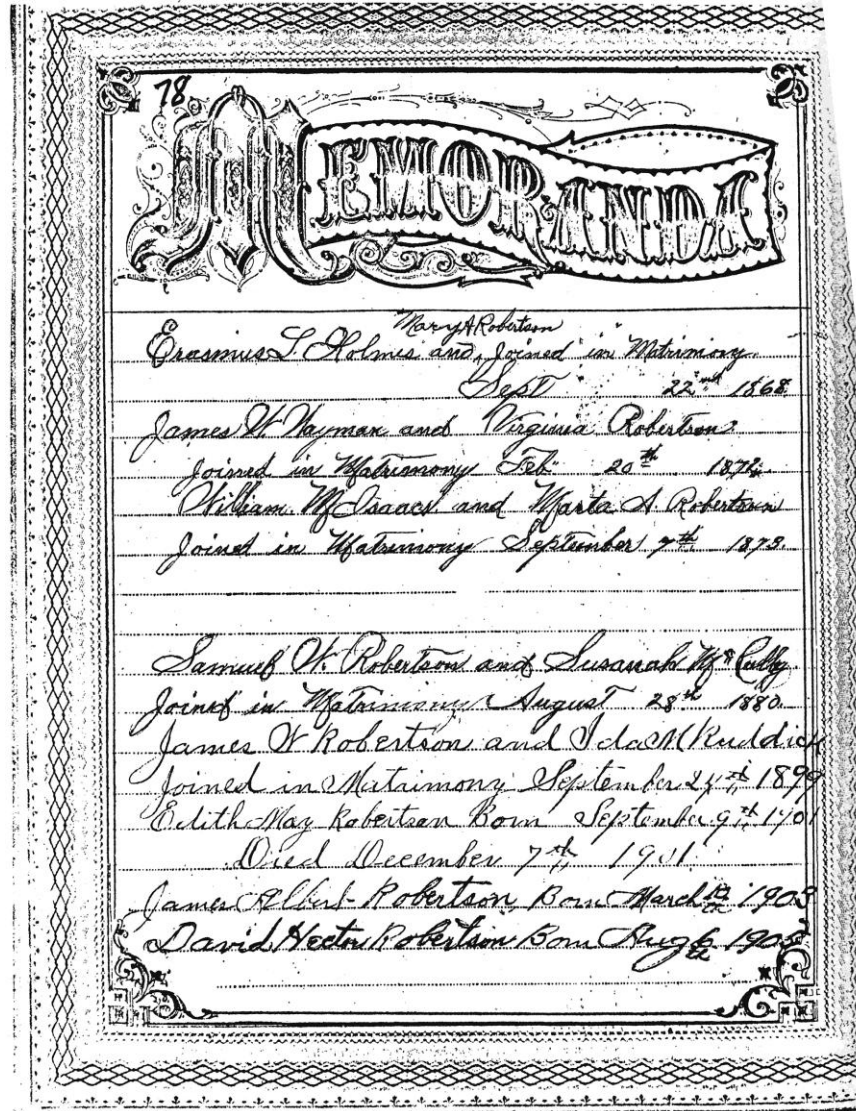 78
MEMORANDA
Mary A Robertson
Erasmus L. Holmes and, Joined in Matrimony
Sept 22nd 1868.
James W. Wayman and Virginia Robertson
Joined in Matrimony Feb. 20th
William McIsaacs and A Robertson
Joined in Matrimony September 7th 1879.
Samuel W. Robertson and Susanah
Joined in Matrimony August 28th 1880.
James W Robertson and Ida M Ruddick
Joined in Matrimony September 1899
Edith May Robertson Born September 9th 1901
Died December 7th 1901
James Albert Robertson Born March 1903
David Hector Robertson Born Aug 6th